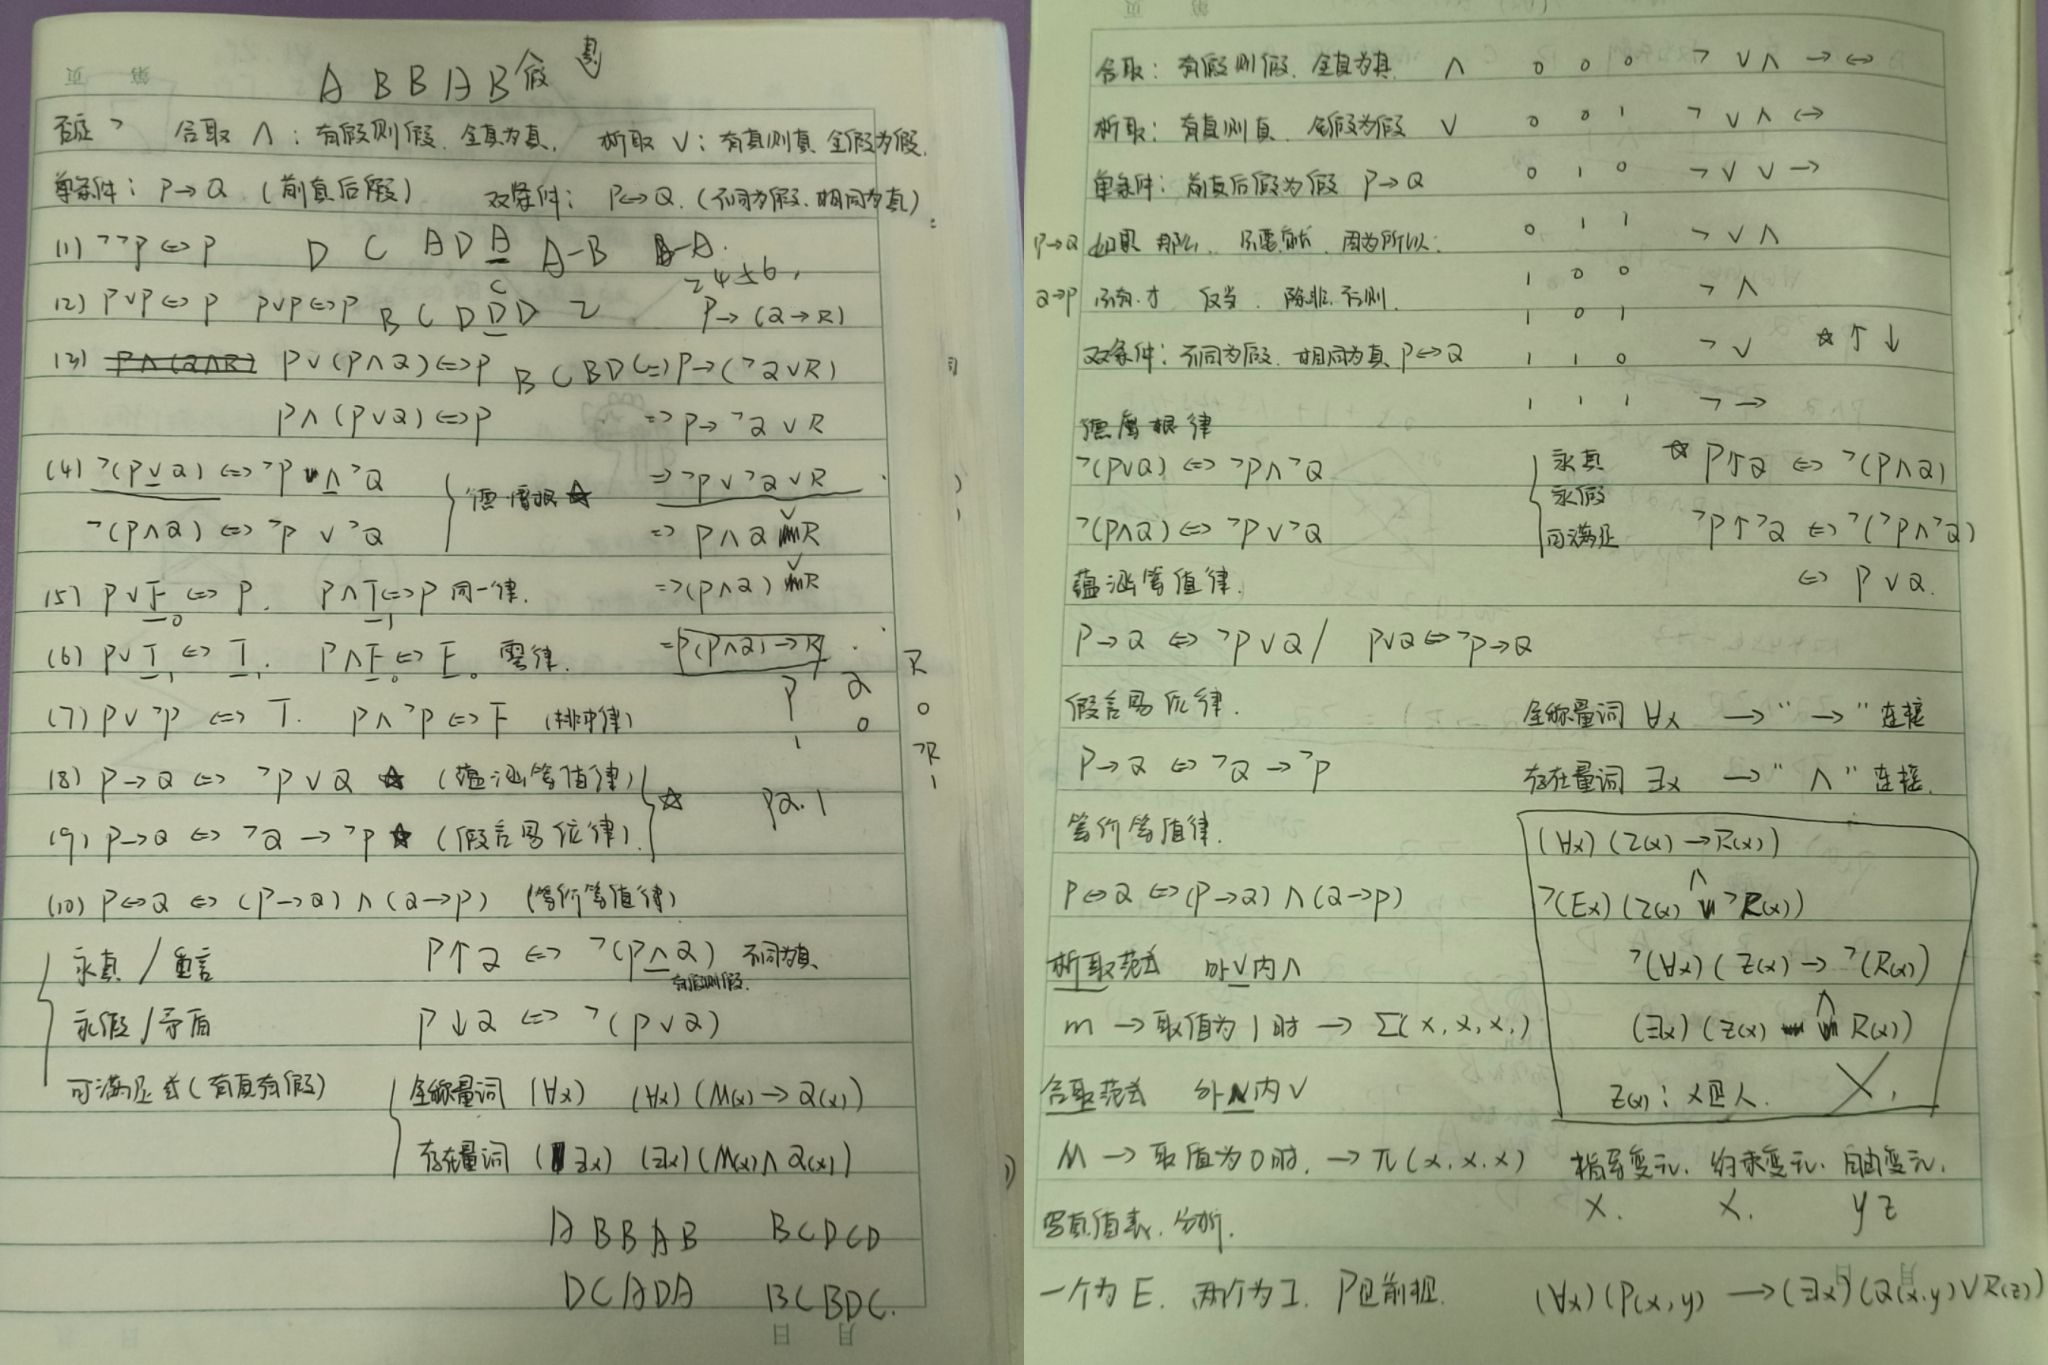 A B B A B 假 真
否定 ¬ 合取 ∧：有假则假、全真为真. 析取 ∨：有真则真 全假为假.
单条件：P→Q (前真后假) 双条件：P↔Q. (不同为假、相同为真)
(1) ¬¬P⇔P D C A D A A-B B-A.
C
(2) P∨P⇔P P∨P⇔P B C D D D P→(Q→R)
(3) P∨(P∧Q)⇔P B C B D C ⇔P→(¬Q∨R)
P∧(P∨Q)⇔P ⇒P→¬Q∨R
(4) ¬(P∨Q)⇔¬P∧¬Q 德摩根☆ ⇒¬P∨¬Q∨R
¬(P∧Q)⇔¬P∨¬Q ⇒P∧Q∨R
(5) P∨F⇔P. P∧T⇔P 同一律. ⇒¬(P∧Q)∨R
0 1
(6) P∨T⇔T. P∧F⇔F 零律. =(P∧Q)→R
1 1 0 0
(7) P∨¬P⇔T. P∧¬P⇔F (排中律)
P Q R
1 0 0
¬R
1
(8) P→Q⇔¬P∨Q ☆ (蕴涵等值律)
☆ PQ.1
(9) P→Q⇔¬Q→¬P ☆ (假言易位律).
(10) P↔Q⇔(P→Q)∧(Q→P) (等价等值律)
永真/重言 P↑Q⇔¬(P∧Q) 不同为真
有假则假.
永假/矛盾 P↓Q⇔¬(P∨Q)
可满足式(有真有假) 全称量词 (∀x) (∀x)(M(x)→Q(x))
存在量词 (∃x) (∃x)(M(x)∧Q(x))
A B B A B B C D C D
D C A D A B C B D C.
合取：有假则假、全真为真 ∧ 0 0 0 ¬ ∨ ∧ → ↔
析取：有真则真、全假为假 ∨ 0 0 1 ¬ ∨ ∧ ↔
单条件：前真后假为假 P→Q 0 1 0 ¬ ∨ ∨ →
P→Q 如果 那么、只要就、因为所以. 0 1 1 ¬ ∨ ∧
Q→P 只有.才 仅当. 除非.否则. 1 0 0 ¬ ∧
1 0 1
双条件：不同为假、相同为真 P↔Q 1 1 0 ¬ ∨ ☆ ↑ ↓
1 1 1 ¬ →
德摩根律
¬(P∨Q)⇔¬P∧¬Q 永真 ☆ P↑Q⇔¬(P∧Q)
永假
¬(P∧Q)⇔¬P∨¬Q 可满足 ¬P↑¬Q⇔¬(¬P∧¬Q)
蕴涵等值律. ⇔P∨Q.
P→Q⇔¬P∨Q / P∨Q⇔¬P→Q
假言易位律. 全称量词 ∀x →"→"连接
P→Q⇔¬Q→¬P 存在量词 ∃x →"∧"连接.
等价等值律. (∀x)(Z(x)→R(x))
P↔Q⇔(P→Q)∧(Q→P) ¬(Ex)(Z(x)∧¬R(x))
析取范式 外∨内∧ ¬(∀x)(Z(x)→¬(R(x))
m→取值为1时→Σ(x,x,x,) (∃x)(Z(x)∧R(x))
合取范式 外∧内∨ Z(x)：x是人.
M→取值为0时.→π(x.x.x) 指导变元、约束变元、自由变元.
写真值表、分析. x. x. y z
一个为E. 两个为I. P是前提. (∀x)(P(x,y)→(∃x)(Q(x,y)∨R(z))